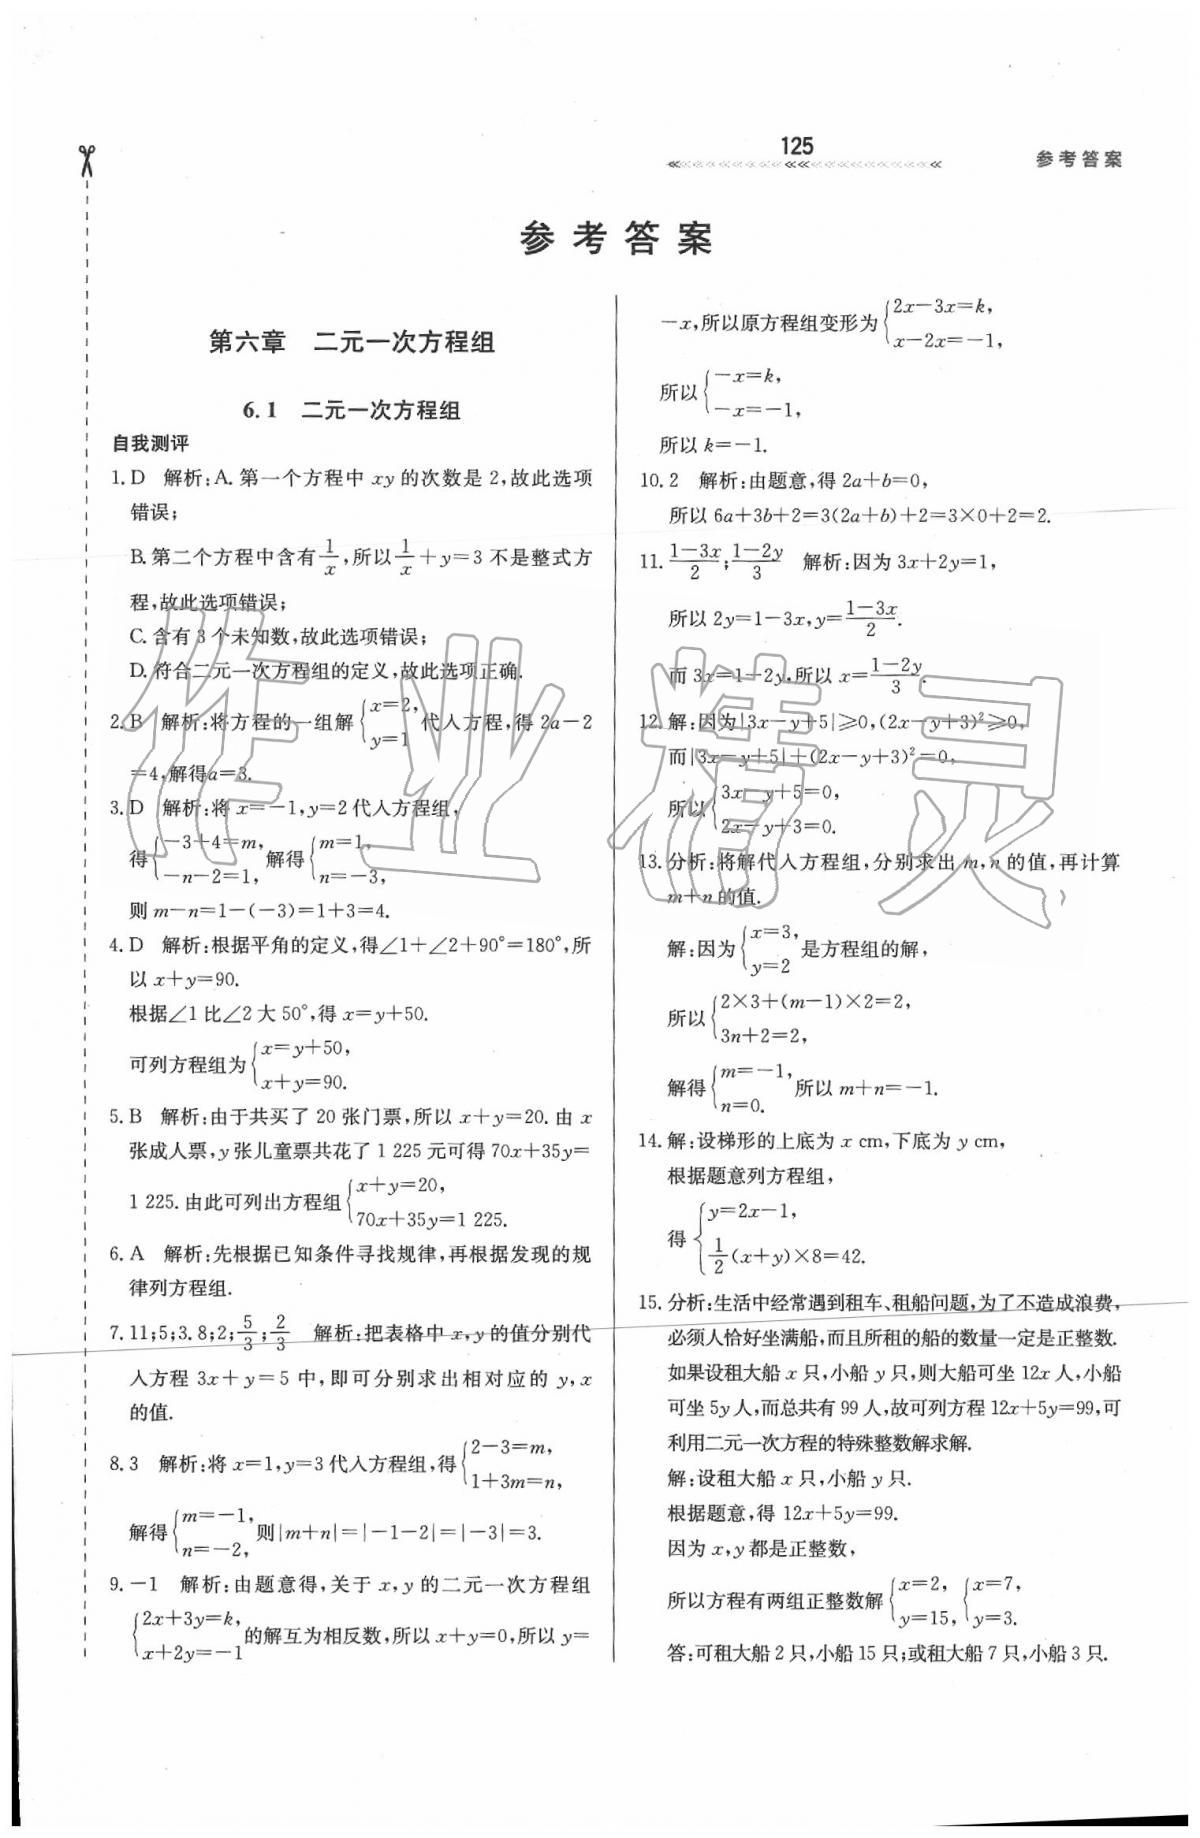 125
参考答案
参考答案
第六章 二元一次方程组
6.1 二元一次方程组
自我测评
1. D 解析:A. 第一个方程中 xy 的次数是 2,故此选项
错误;
B. 第二个方程中含有 1/x,所以 1/x + y=3 不是整式方
程,故此选项错误;
C. 含有 3 个未知数,故此选项错误;
D. 符合二元一次方程组的定义,故此选项正确.
2. B 解析:将方程的一组解 {x=2, y=1 代入方程,得 2a-2
=4,解得a=3.
3. D 解析:将 x=-1,y=2 代入方程组,
得 {-3+4=m, -n-2=1, 解得 {m=1, n=-3,
则 m-n=1-(-3)=1+3=4.
4. D 解析:根据平角的定义,得∠1+∠2+90°=180°,所
以 x+y=90.
根据∠1 比∠2 大 50°,得 x=y+50.
可列方程组为 {x=y+50, x+y=90.
5. B 解析:由于共买了 20 张门票,所以 x+y=20. 由 x
张成人票,y 张儿童票共花了 1 225 元可得 70x+35y=
1 225. 由此可列出方程组 {x+y=20, 70x+35y=1 225.
6. A 解析:先根据已知条件寻找规律,再根据发现的规
律列方程组.
7. 11;5;3.8;2;5/3;2/3 解析:把表格中 x,y 的值分别代
入方程 3x+y=5 中,即可分别求出相对应的 y,x
的值.
8. 3 解析:将 x=1,y=3 代入方程组,得 {2-3=m, 1+3m=n,
解得 {m=-1, n=-2, 则|m+n|=|-1-2|=|-3|=3.
9. -1 解析:由题意得,关于 x,y 的二元一次方程组
{2x+3y=k, x+2y=-1 的解互为相反数,所以 x+y=0,所以 y=
-x,所以原方程组变形为 {2x-3x=k, x-2x=-1,
所以 {-x=k, -x=-1,
所以 k=-1.
10. 2 解析:由题意,得 2a+b=0,
所以 6a+3b+2=3(2a+b)+2=3×0+2=2.
11. (1-3x)/2;(1-2y)/3 解析:因为 3x+2y=1,
所以 2y=1-3x,y=(1-3x)/2.
而 3x=1-2y,所以 x=(1-2y)/3.
12. 解:因为|3x-y+5|≥0,(2x-y+3)²≥0,
而|3x-y+5|+(2x-y+3)²=0,
所以 {3x-y+5=0, 2x-y+3=0.
13. 分析:将解代入方程组,分别求出 m,n 的值,再计算
m+n 的值.
解:因为 {x=3, y=2 是方程组的解,
所以 {2×3+(m-1)×2=2, 3n+2=2,
解得 {m=-1, n=0. 所以 m+n=-1.
14. 解:设梯形的上底为 x cm,下底为 y cm,
根据题意列方程组,
得 {y=2x-1, 1/2(x+y)×8=42.
15. 分析:生活中经常遇到租车、租船问题,为了不造成浪费,
必须人恰好坐满船,而且所租的船的数量一定是正整数.
如果设租大船 x 只,小船 y 只,则大船可坐 12x 人,小船
可坐 5y 人,而总共有 99 人,故可列方程 12x+5y=99,可
利用二元一次方程的特殊整数解求解.
解:设租大船 x 只,小船 y 只.
根据题意,得 12x+5y=99.
因为 x,y 都是正整数,
所以方程有两组正整数解 {x=2, y=15, {x=7, y=3.
答:可租大船 2 只,小船 15 只;或租大船 7 只,小船 3 只.
作业精灵